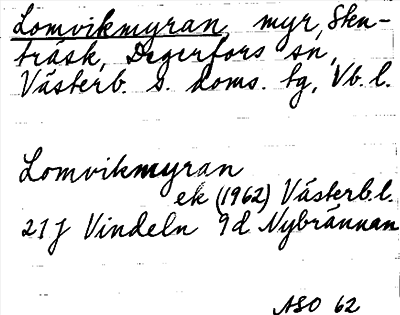 Lomvikmyran, myr, Sten-
träsk, Degerfors sn,
Västerb. s. doms. tg, Vb. l.
Lomvikmyran
ek (1962) Västerb.l.
21J Vindeln 9d Nybrännan
ASO 62